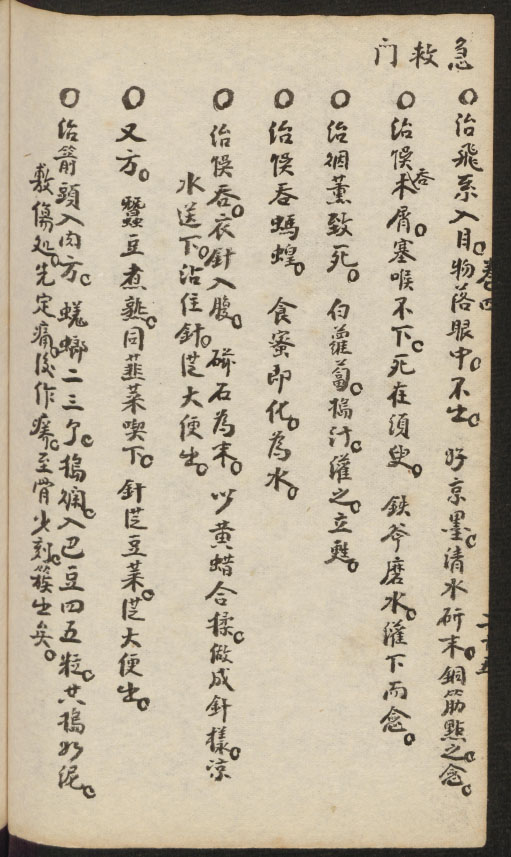 急救门
〇治飛糸入目。物落眼中。不出。好京墨。清水研末。銅筋點之。愈。
〇治悮吞木屑。塞喉不下。死在須臾。鉄斧磨水。灌下而愈。
〇治烟薰致死。白蘿蔔。搗汁。灌之。立甦。
〇治悮吞螞蝗。食蜜即化。為水。
〇治悮吞。衣針入腹。磁石為末。以黄蜡合揉。做成針様。凉
水送下。沾住針。從大便出。
〇又方。蠶豆煮熟。同韮菜喫下。針從豆菜。從大便出。
〇治箭頭入肉方。蜣螂二三个。搗爛。入巴豆四五粒。共搗如泥。
敷傷处。先定痛。後作癢。至骨少刻。簇出矣。
卷四